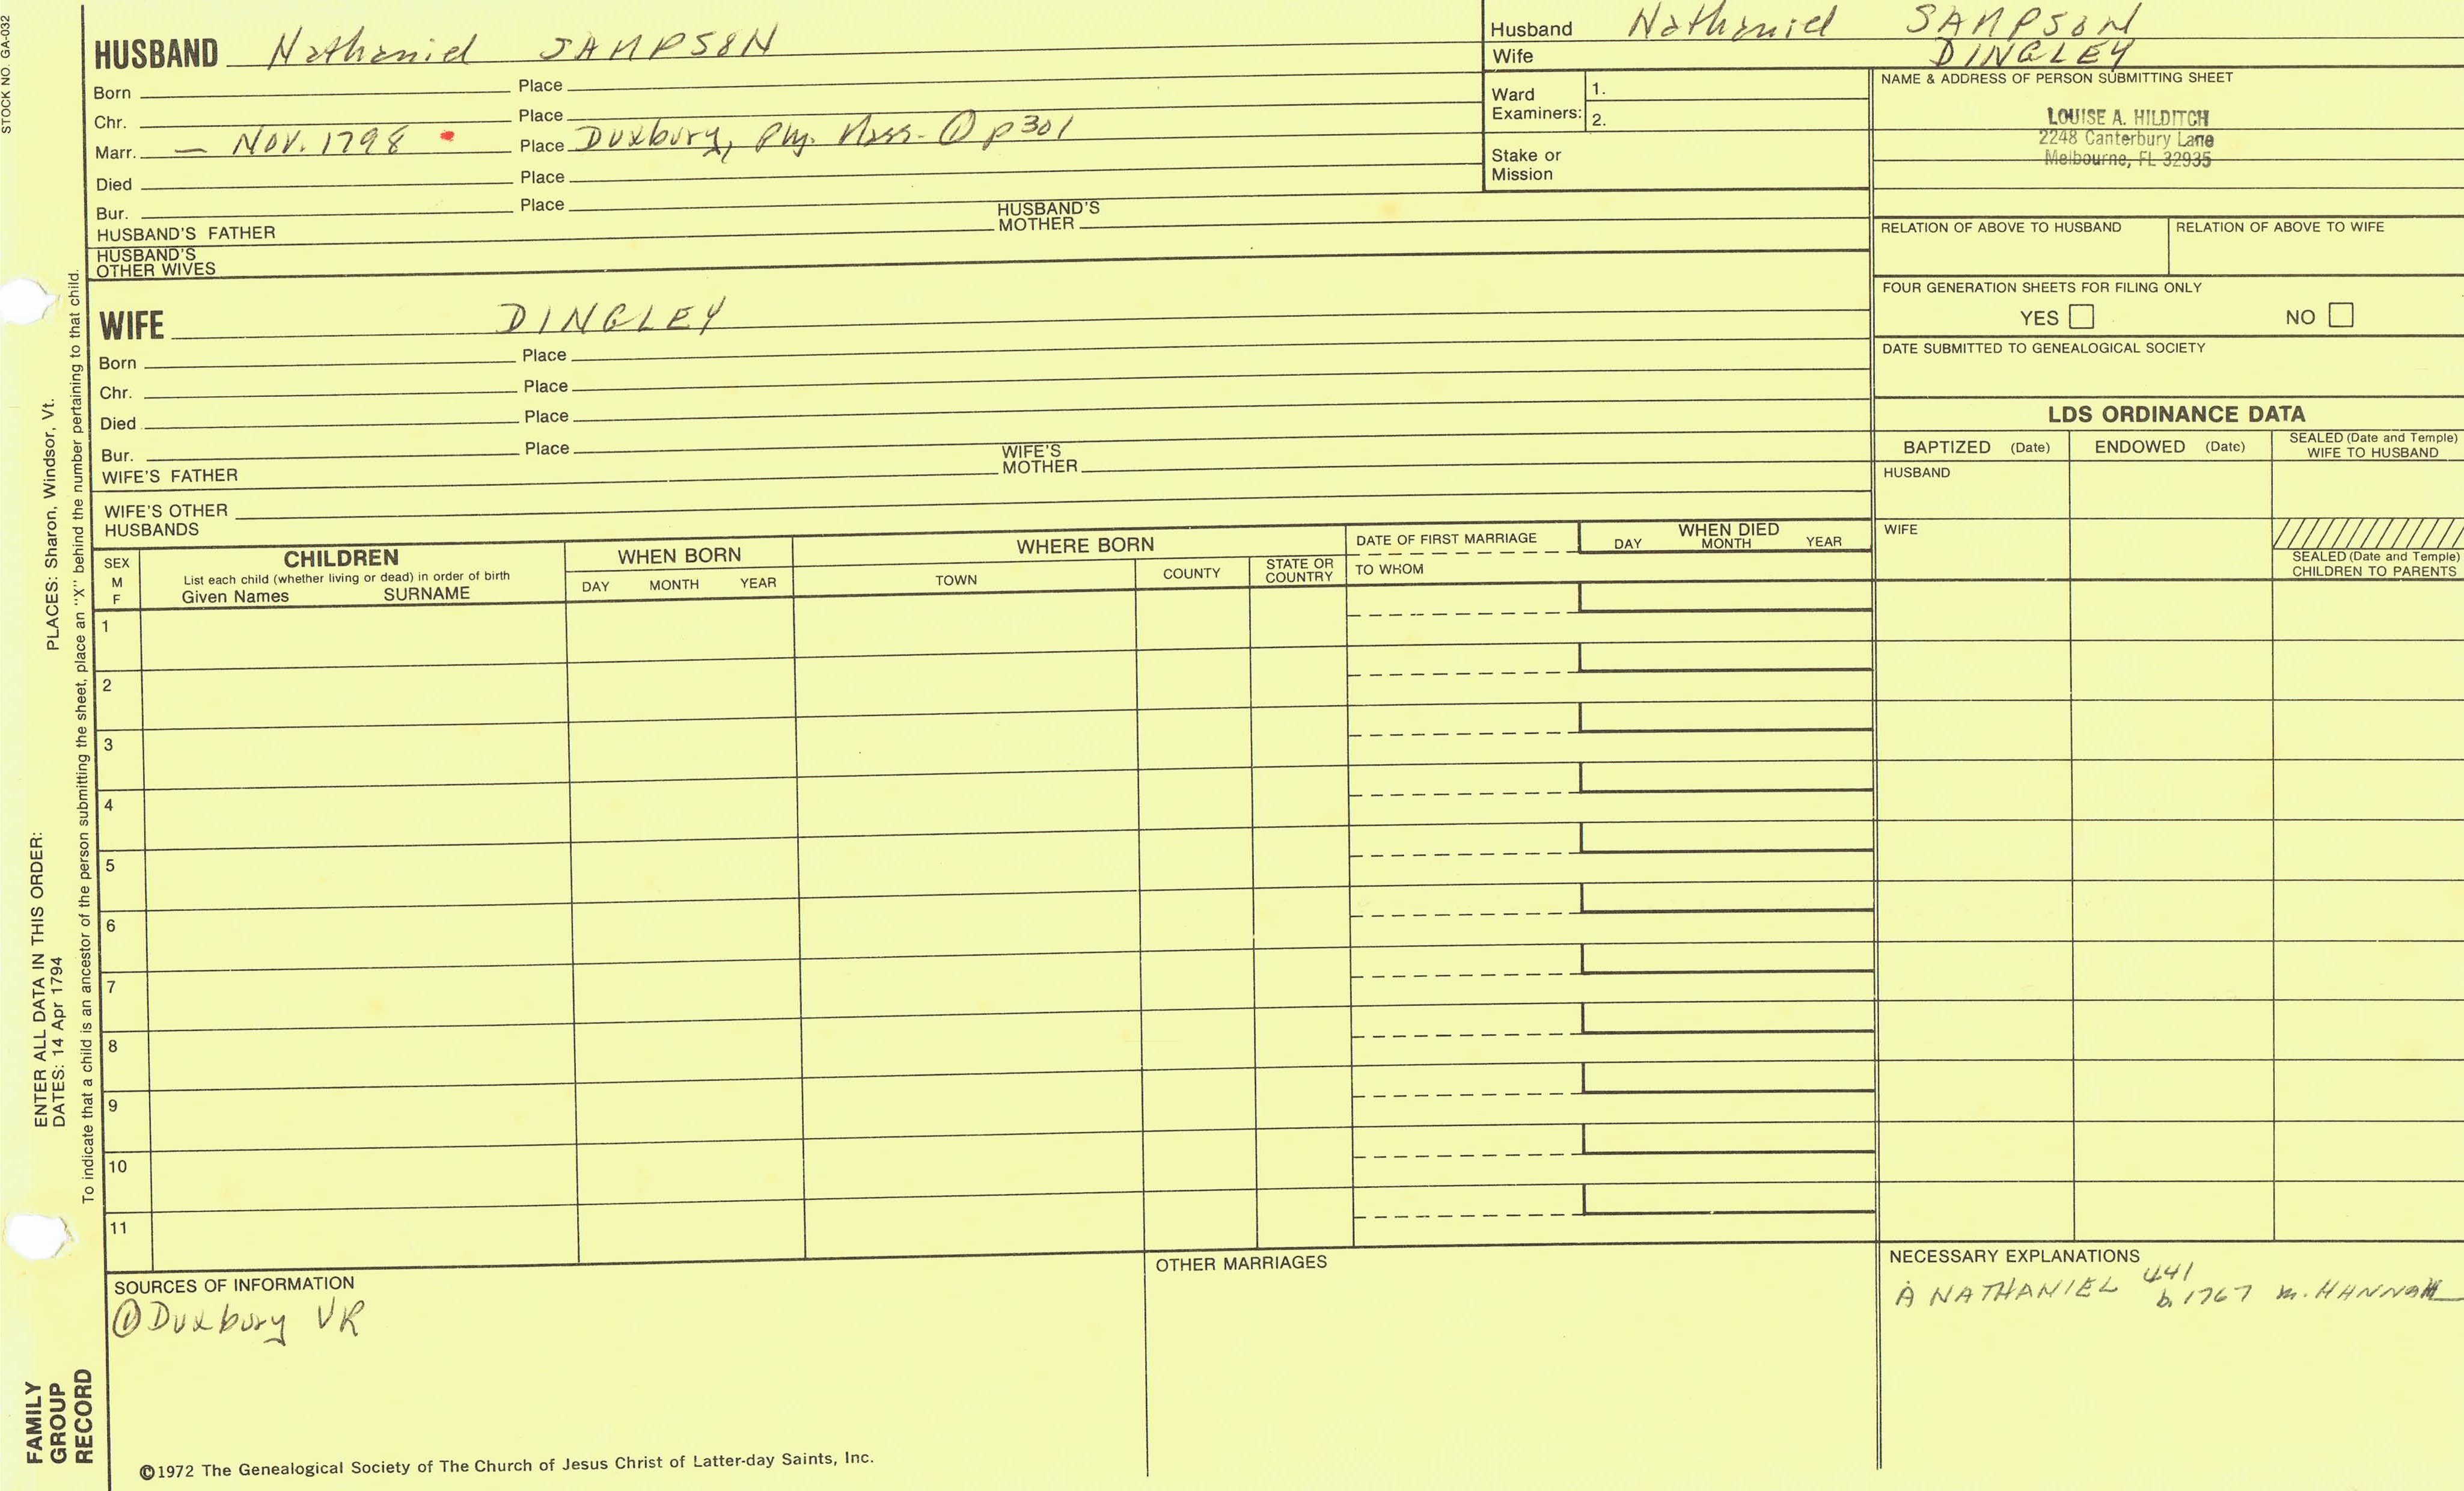 STOCK NO. GA-032
HUSBAND Nathaniel SAMPSON
Born Place
Chr. Place
Marr. — Nov. 1798 Place Duxbury, Ply. Mass. ① p301
Died Place
Bur. Place
HUSBAND'S FATHER HUSBAND'S MOTHER
HUSBAND'S OTHER WIVES
Husband Nathaniel SAMPSON
Wife DINGLEY
Ward Examiners: 1.
2.
Stake or Mission
NAME & ADDRESS OF PERSON SUBMITTING SHEET
LOUISE A. HILDITCH
2248 Canterbury Lane
Melbourne, FL 32935
RELATION OF ABOVE TO HUSBAND RELATION OF ABOVE TO WIFE
FOUR GENERATION SHEETS FOR FILING ONLY
YES NO
DATE SUBMITTED TO GENEALOGICAL SOCIETY
WIFE DINGLEY
Born Place
Chr. Place
Died Place
Bur. Place
WIFE'S FATHER WIFE'S MOTHER
WIFE'S OTHER HUSBANDS
LDS ORDINANCE DATA
BAPTIZED (Date) ENDOWED (Date) SEALED (Date and Temple) WIFE TO HUSBAND
HUSBAND
WIFE
SEALED (Date and Temple) CHILDREN TO PARENTS
SEX M F
CHILDREN
List each child (whether living or dead) in order of birth
Given Names SURNAME
WHEN BORN
DAY MONTH YEAR
WHERE BORN
TOWN COUNTY STATE OR COUNTRY
DATE OF FIRST MARRIAGE
TO WHOM
WHEN DIED
DAY MONTH YEAR
1
2
3
4
5
6
7
8
9
10
11
SOURCES OF INFORMATION
① Duxbury VR
OTHER MARRIAGES
NECESSARY EXPLANATIONS
A NATHANIEL 441 b. 1767 m. HANNAH
©1972 The Genealogical Society of The Church of Jesus Christ of Latter-day Saints, Inc.
FAMILY GROUP RECORD
ENTER ALL DATA IN THIS ORDER:
DATES: 14 Apr 1794
PLACES: Sharon, Windsor, Vt.
To indicate that a child is an ancestor of the person submitting the sheet, place an "X" behind the number pertaining to that child.